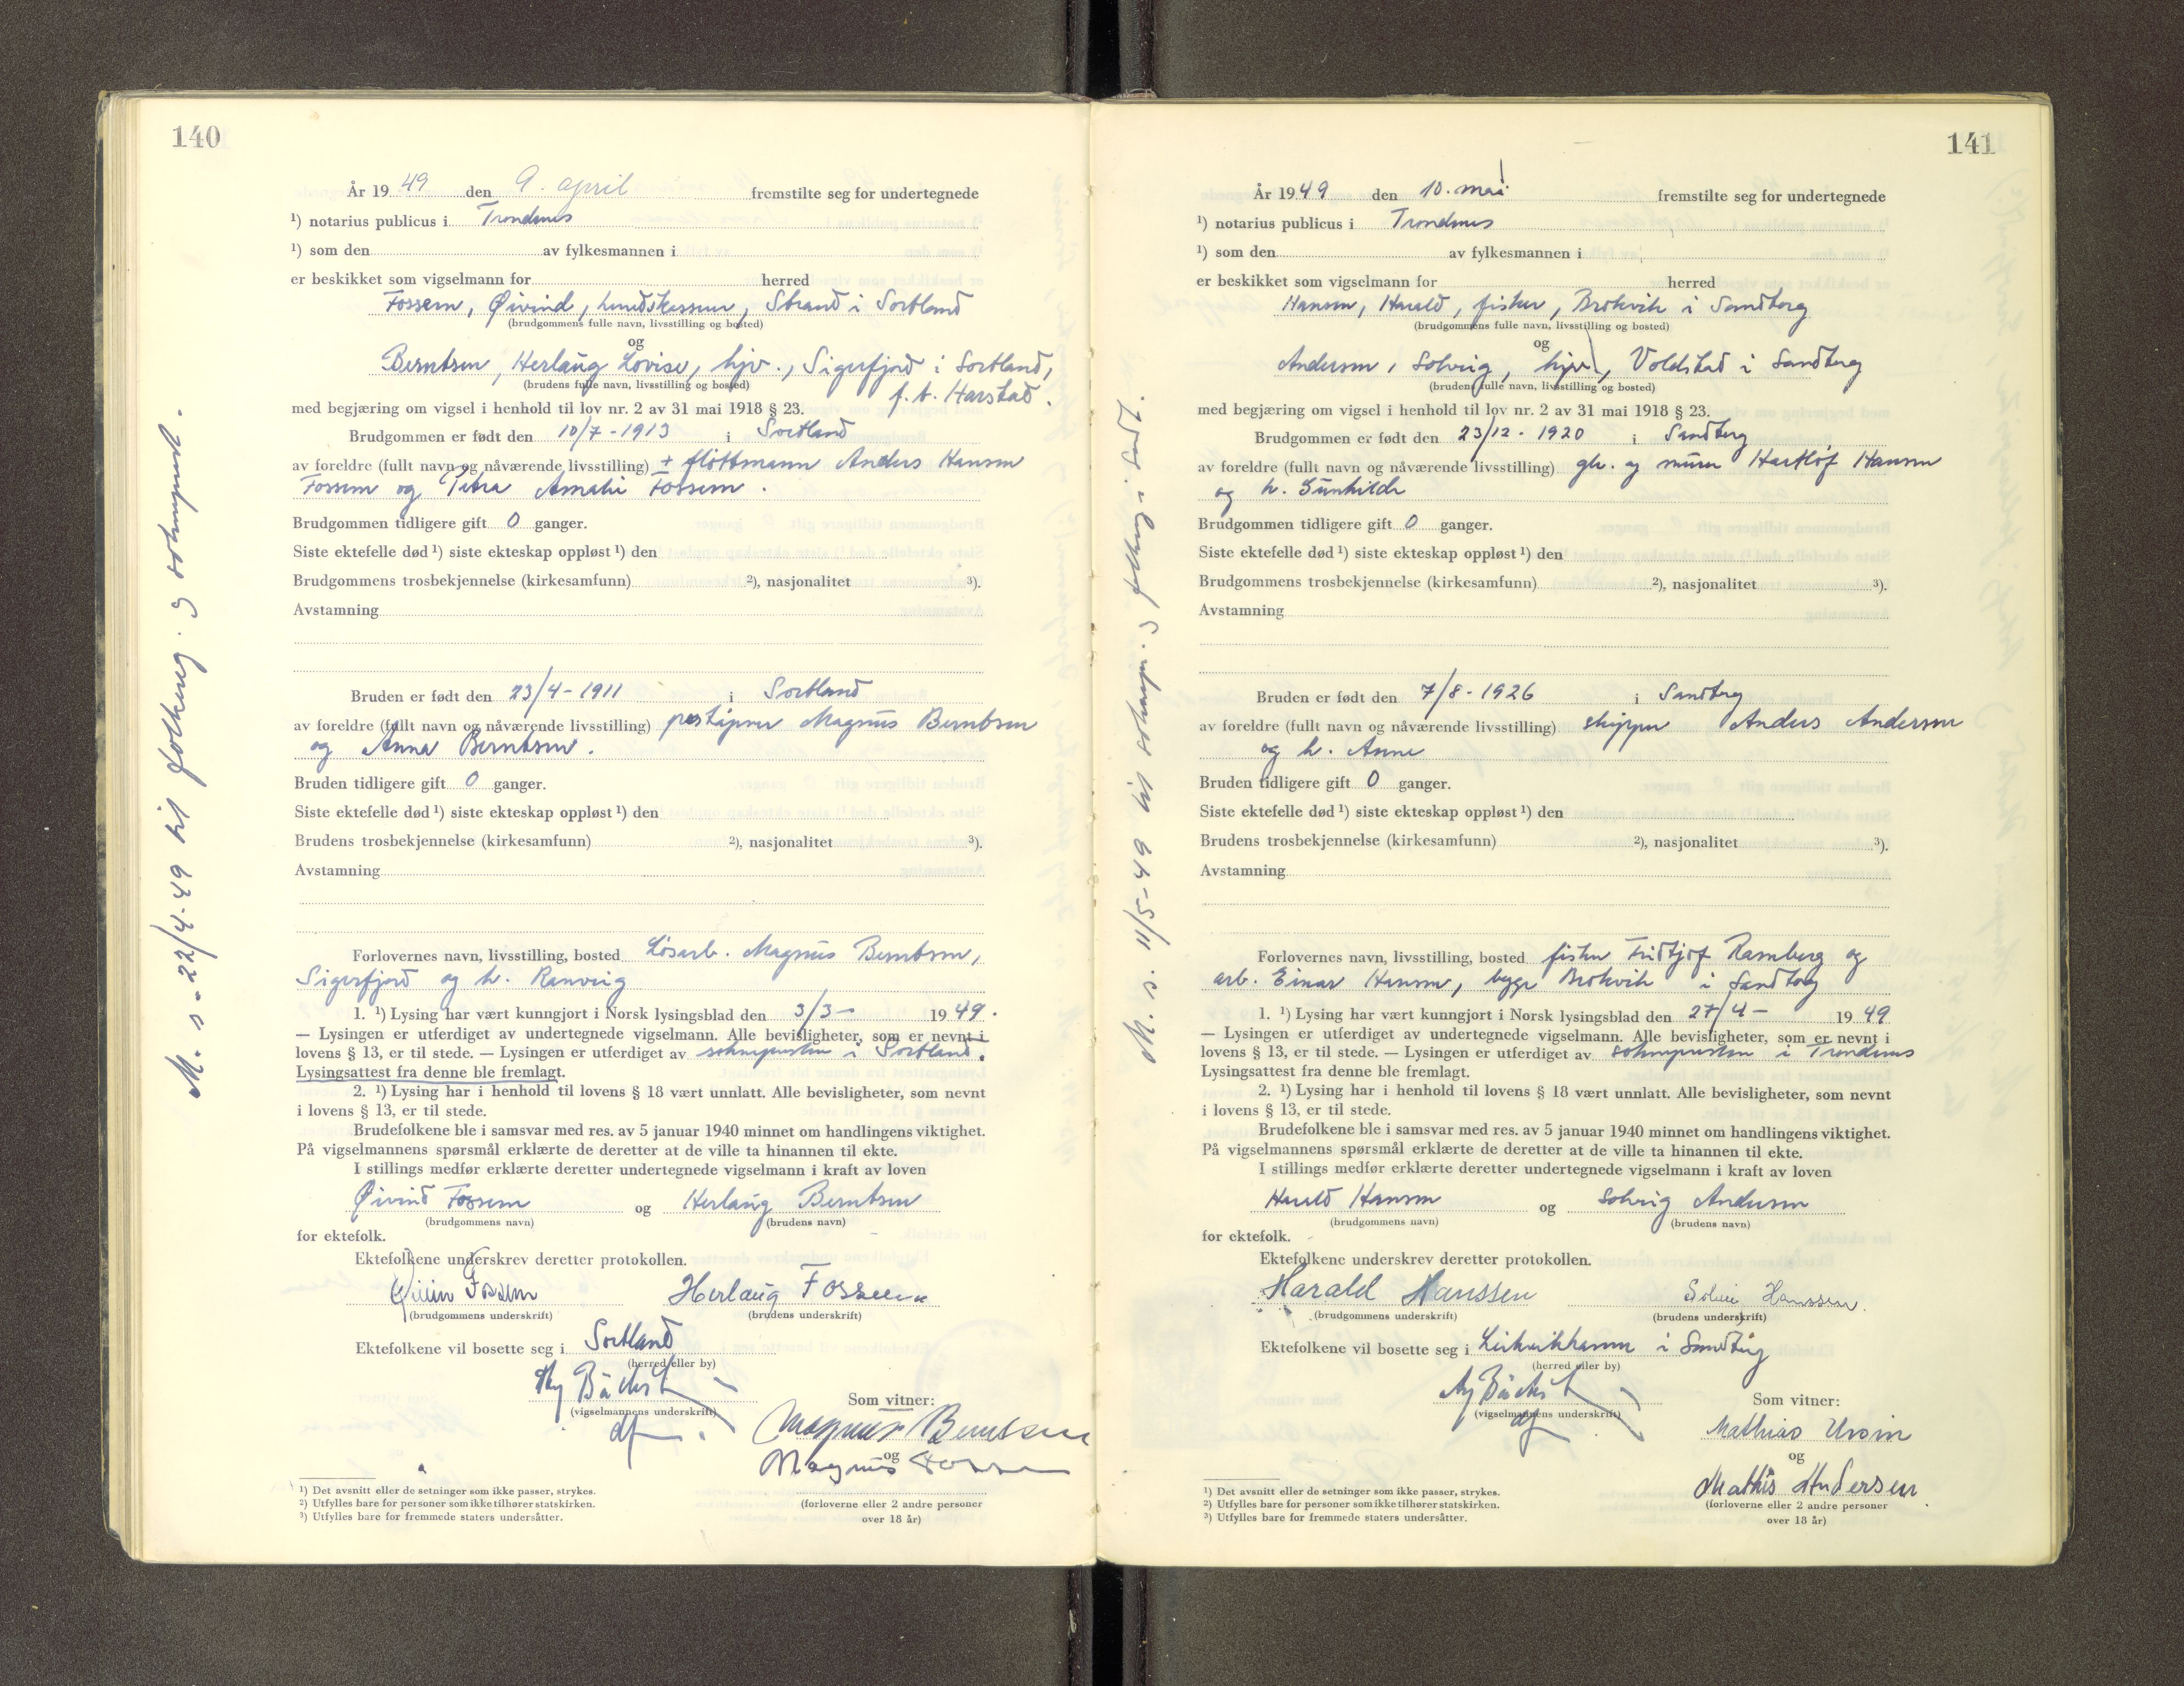 140
År 1949 den 9. april fremstilte seg for undertegnede
¹) notarius publicus i Trondenes
¹) som den av fylkesmannen i
er beskikket som vigselmann for herred
Fossem, Øivind, Strand i Sortland
(brudgommens fulle navn, livsstilling og bosted)
og
Berntsen, Herlaug Lovise, hjv., Sigerfjord i Sortland,
(brudens fulle navn, livsstilling og bosted)
f.t. Harstad.
med begjæring om vigsel i henhold til lov nr. 2 av 31 mai 1918 § 23.
Brudgommen er født den 10/7-1913 i Sortland
av foreldre (fullt navn og nåværende livsstilling) + flottmann Anders Hansen
Fossem og Petra Amalie Fossem.
Brudgommen tidligere gift 0 ganger.
Siste ektefelle død ¹) siste ekteskap oppløst ¹) den
Brudgommens trosbekjennelse (kirkesamfunn) ²), nasjonalitet ³).
Avstamning
Bruden er født den 23/4-1911 i Sortland
av foreldre (fullt navn og nåværende livsstilling) poståpner Magnus Berntsen
og Anna Berntsen.
Bruden tidligere gift 0 ganger.
Siste ektefelle død ¹) siste ekteskap oppløst ¹) den
Brudens trosbekjennelse (kirkesamfunn) ²), nasjonalitet ³).
Avstamning
Forlovernes navn, livsstilling, bosted Løsarb. Magnus Berntsen,
Sigerfjord og h. Ranveig
1. ¹) Lysing har vært kunngjort i Norsk lysingsblad den 3/3- 1949.
— Lysingen er utferdiget av undertegnede vigselmann. Alle bevisligheter, som er nevnt i
lovens § 13, er til stede. — Lysingen er utferdiget av soknepresten i Sortland.
Lysingsattest fra denne ble fremlagt.
2. ¹) Lysing har i henhold til lovens § 18 vært unnlatt. Alle bevisligheter, som nevnt
i lovens § 13, er til stede.
Brudefolkene ble i samsvar med res. av 5 januar 1940 minnet om handlingens viktighet.
På vigselmannens spørsmål erklærte de deretter at de ville ta hinannen til ekte.
I stillings medfør erklærte deretter undertegnede vigselmann i kraft av loven
Øivind Fossem og Herlaug Berntsen
(brudgommens navn) (brudens navn)
for ektefolk.
Ektefolkene underskrev deretter protokollen.
Øivin Fossem Herlaug Fossem
(brudgommens underskrift) (brudens underskrift)
Ektefolkene vil bosette seg i Sortland
(herred eller by)
Som vitner:
(vigselmannens underskrift)
Magnus Berntsen
og
Magnus Fossem
¹) Det avsnitt eller de setninger som ikke passer, strykes.
²) Utfylles bare for personer som ikke tilhører statskirken.
³) Utfylles bare for fremmede staters undersåtter.
(forloverne eller 2 andre personer
over 18 år)
M. s. 22/4-49 til folkereg. og sokneprest.
141
År 1949 den 10. mai fremstilte seg for undertegnede
¹) notarius publicus i Trondenes
¹) som den av fylkesmannen i
er beskikket som vigselmann for herred
Hansen, Harald, fisker, Brokvik i Sandtorg
(brudgommens fulle navn, livsstilling og bosted)
og
Andersen, Solveig, hjv, Voldstad i Sandtorg
(brudens fulle navn, livsstilling og bosted)
med begjæring om vigsel i henhold til lov nr. 2 av 31 mai 1918 § 23.
Brudgommen er født den 23/12-1920 i Sandtorg
av foreldre (fullt navn og nåværende livsstilling) gbr. og murer Hartløf Hansen
og h. Gunhilde
Brudgommen tidligere gift 0 ganger.
Siste ektefelle død ¹) siste ekteskap oppløst ¹) den
Brudgommens trosbekjennelse (kirkesamfunn) ²), nasjonalitet ³).
Avstamning
Bruden er født den 7/8-1926 i Sandtorg
av foreldre (fullt navn og nåværende livsstilling) skipper Anders Andersen
og h. Anne
Bruden tidligere gift 0 ganger.
Siste ektefelle død ¹) siste ekteskap oppløst ¹) den
Brudens trosbekjennelse (kirkesamfunn) ²), nasjonalitet ³).
Avstamning
Forlovernes navn, livsstilling, bosted fisker Fridtjof Ramberg og
arb. Einar Hansen, begge Brokvik i Sandtorg
1. ¹) Lysing har vært kunngjort i Norsk lysingsblad den 27/4- 1949
— Lysingen er utferdiget av undertegnede vigselmann. Alle bevisligheter, som er nevnt i
lovens § 13, er til stede. — Lysingen er utferdiget av soknepresten i Trondenes
Lysingsattest fra denne ble fremlagt.
2. ¹) Lysing har i henhold til lovens § 18 vært unnlatt. Alle bevisligheter, som nevnt
i lovens § 13, er til stede.
Brudefolkene ble i samsvar med res. av 5 januar 1940 minnet om handlingens viktighet.
På vigselmannens spørsmål erklærte de deretter at de ville ta hinannen til ekte.
I stillings medfør erklærte deretter undertegnede vigselmann i kraft av loven
Harald Hansen og Solveig Andersen
(brudgommens navn) (brudens navn)
for ektefolk.
Ektefolkene underskrev deretter protokollen.
Harald Hanssen Solvei Hanssen.
(brudgommens underskrift) (brudens underskrift)
Ektefolkene vil bosette seg i i Sandtorg
(herred eller by)
Som vitner:
(vigselmannens underskrift)
Mathias Ursin
og
Mathis Andersen
¹) Det avsnitt eller de setninger som ikke passer, strykes.
²) Utfylles bare for personer som ikke tilhører statskirken.
³) Utfylles bare for fremmede staters undersåtter.
(forloverne eller 2 andre personer
over 18 år)
M. s. 11/5-49 til soknepr. og folkereg. i Sandt.